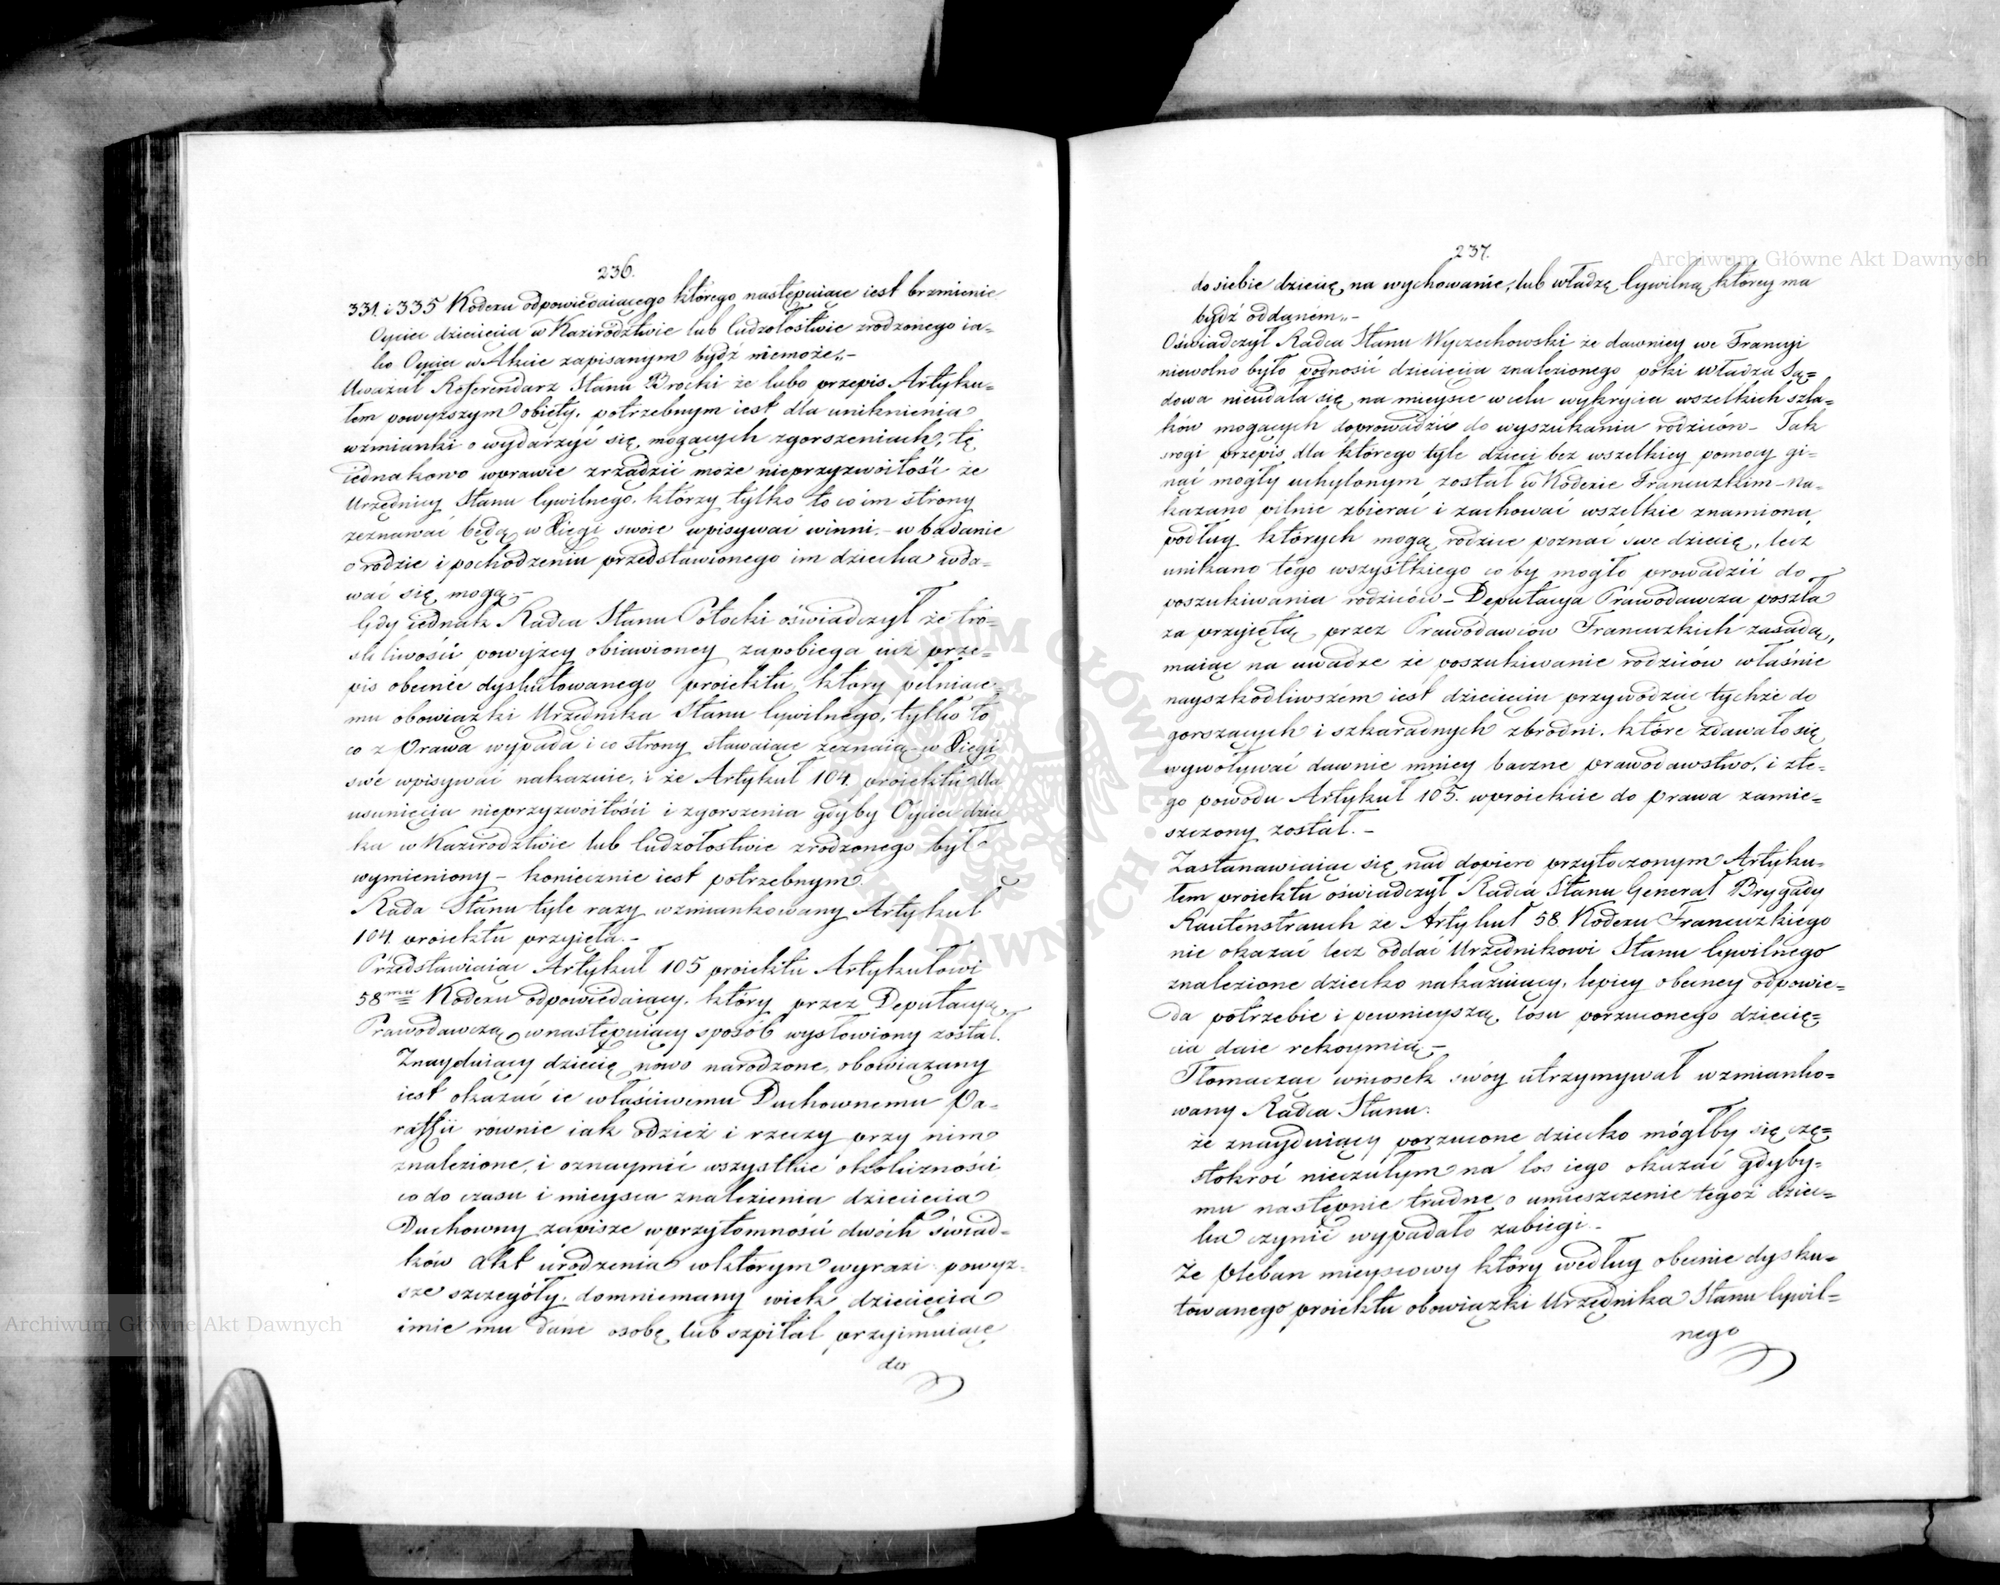 236.
331. i 335 Kodexu odpowiedaiącego którego następuiące iest brzmienie
Oyciec dziecięcia w Kazirodztwie lub Cudzołostwie zrodzonego ia-
ko Oyciec w Akcie zapisanym bydź niemoże„-
Uważał Referendarz Stanu Brocki że lubo przepis Artyku-
łem powyższym obięty, potrzebnym iest dla uniknienia
wzmianki o wydarzyć się mogących zgorszeniach, tę
iednakowo wprawie zrządzić może nieprzyzwoitość że
Urzędnicy Stanu Cywilnego, którzy tylko to co im strony
zeznawać będą w Xięgi swoie wpisywać winni,- w badanie
o rodzie i pochodzeniu przedstawionego im dziecka wda-
wać się mogą,-
Gdy iednak Radca Stanu Potocki oświadczył że tro-
skliwości powyżey obiawioney zapobiega iuż prze-
pis obecnie dyskutowanego proiektu, który pełniące-
mu obowiązki Urzędnika Stanu Cywilnego, tylko to
co z Prawa wypada i co strony stawaiące zeznaią w Xięgi
swe wpisywać nakazuie, i że Artykuł 104 proiektu dla
usunięcia nieprzyzwoitości i zgorszenia gdyby Oyciec dziec
ka w Kazirodztwie lub Cudzołostwie zrodzonego był
wymieniony - koniecznie iest potrzebnym
Rada Stanu tyle razy wzmiankowany Artykuł
104. proiektu przyięła.-
Przedstawiaiąc Artykuł 105 proiektu Artykułowi
58mu Kodexu odpowiedaiący, który przez Deputacyą
Prawodawczą w następuiący sposób wysłowiony został.
Znayduiący dziecię nowo narodzone, obowiązany
iest okazać ie właściwemu Duchownemu Pa-
raffii równie iak odzież i rzeczy przy nim
znalezione, i oznaymić wszystkie okoliczności
co do czasu i mieysca znalezienia dziecięcia
Duchowny zapisze w przytomności dwóch świad-
ków Akt urodzenia w którym wyrazi powyż-
sze szczegóły, domniemany wiek dziecięcia
imie mu dane osobę lub szpital przyimuiące
do
237.
do siebie dziecię na wychowanie, lub władzę Cywilną którey ma
bydź oddanem„-
Oświadczył Radca Stanu Wyczechowski że dawniey we Francyi
niewolno było podnosić dziecięcia znalezionego póki władza Są-
dowa nieudała się na mieysce w celu wykrycia wszelkich szla-
ków mogących doprowadzić do wyszukania rodziców - Tak
srogi przepis dla którego tyle dzieci bez wszelkiey pomocy gi-
nąć mogły uchylonym został w Kodexie Francuzkim - na-
kazano pilnie zbierać i zachować wszelkie znamiona
podług których mogą rodzice poznać swe dziecię, lecz
unikano tego wszystkiego co by mogło prowadzić do
poszukiwania rodziców - Deputacya Prawodawcza poszła
za przyiętą przez Prawodawców Francuzkich zasadą,
maiąc na uwadze że poszukiwanie rodziców właśnie
nayszkodliwszém iest dziecięciu przywodząc tychże do
gorszących i szkaradnych zbrodni, które zdawało się
wywoływać dawnie mniey baczne prawodawstwo, i z te-
go powodu Artykuł 105. w proiekcie do prawa zamie-
szczony został. -
Zastanawiaiąc się nad dopiero przytoczonym Artyku-
łem proiektu oświadczył Radca Stanu Generał Brygady
Rautenstrauch że Artykuł 58. Kodexu Francuzkiego
nie okazać lecz oddać Urzędnikowi Stanu Cywilnego
znalezione dziecko nakazuiący, lepiey obecney odpowie-
da potrzebie i pewnieyszą losu porzuconego dziecię-
cia daie rękoymią -
Tłomacząc wniosek swóy utrzymywał wzmianko-
wany Radca Stanu:
że znayduiący porzucone dziecko mógłby się czę-
stokroć nieczułym na los iego okazać gdyby-
mu następnie trudne o umieszczenie tegoż dziec-
ka czynić wypadało zabiegi -
Że Pleban mieyscowy który według obecnie dysku-
towanego proiektu obowiązki Urzędnika Stanu Cywil-
nego
Archiwum Główne Akt Dawnych
Archiwum Główne Akt Dawnych
ARCHIWUM GŁÓWNE AKT DAWNYCH